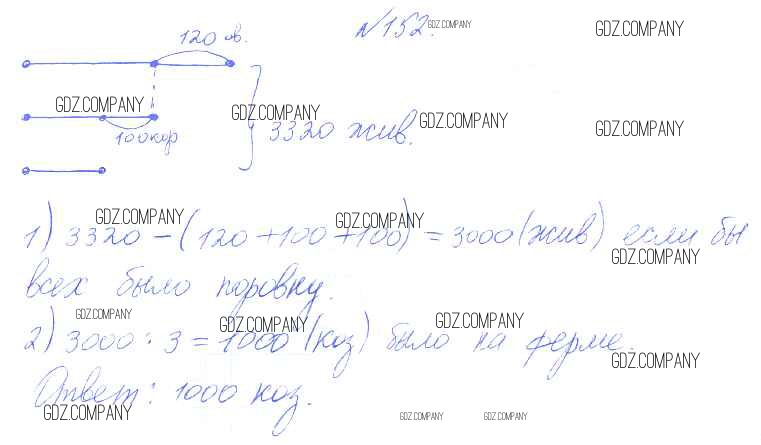 №152.
GDZ.COMPANY
GDZ.COMPANY
120 ов.
GDZ.COMPANY
GDZ.COMPANY
GDZ.COMPANY
GDZ.COMPANY
100 кор
3320 жив.
GDZ.COMPANY
GDZ.COMPANY
1) 3320 - (120 + 100 + 100) = 3000 (жив) если бы
GDZ.COMPANY
всех было поровну.
GDZ.COMPANY
GDZ.COMPANY
GDZ.COMPANY
2) 3000 : 3 = 1000 (коз) было на ферме.
GDZ.COMPANY
Ответ: 1000 коз.
GDZ.COMPANY
GDZ.COMPANY
GDZ.COMPANY